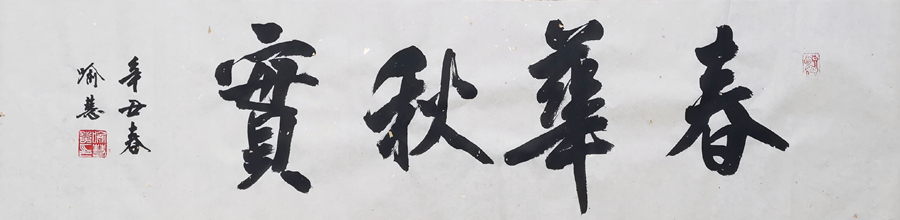 春華秋實
辛丑春
喻慧